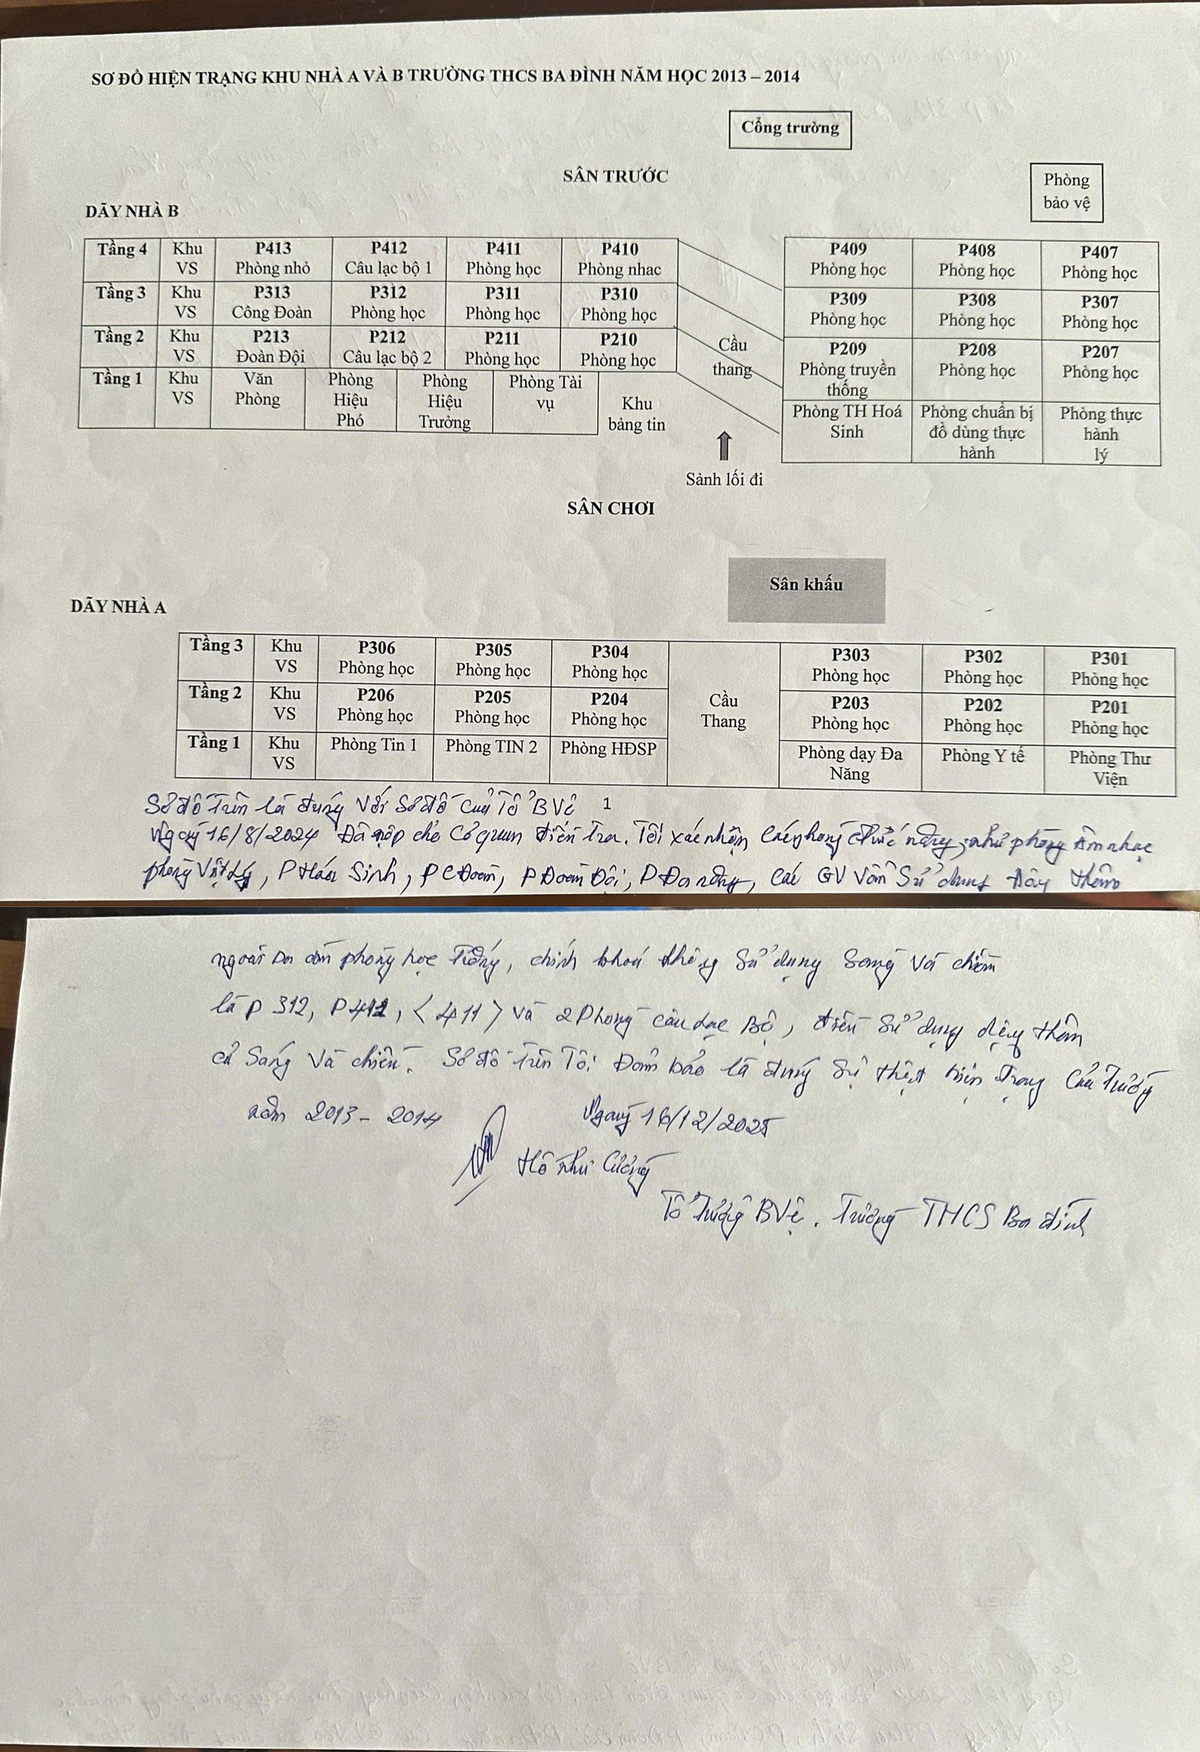 SƠ ĐỒ HIỆN TRẠNG KHU NHÀ A VÀ B TRƯỜNG THCS BA ĐÌNH NĂM HỌC 2013 – 2014
Cổng trường
SÂN TRƯỚC
Phòng
bảo vệ
DÃY NHÀ B
Tầng 4 Khu VS P413 Phòng nhỏ P412 Câu lạc bộ 1 P411 Phòng học P410 Phòng nhac P409 Phòng học P408 Phòng học P407 Phòng học
Tầng 3 Khu VS P313 Công Đoàn P312 Phòng học P311 Phòng học P310 Phòng học P309 Phòng học P308 Phòng học P307 Phòng học
Tầng 2 Khu VS P213 Đoàn Đội P212 Câu lạc bộ 2 P211 Phòng học P210 Phòng học Cầu thang P209 Phòng truyền thống P208 Phòng học P207 Phòng học
Tầng 1 Khu VS Văn Phòng Phòng Hiệu Phó Phòng Hiệu Trưởng Phòng Tài vụ Khu bảng tin Phòng TH Hoá Sinh Phòng chuẩn bị đồ dùng thực hành Phòng thực hành lý
Sảnh lối đi
SÂN CHƠI
Sân khấu
DÃY NHÀ A
Tầng 3 Khu VS P306 Phòng học P305 Phòng học P304 Phòng học P303 Phòng học P302 Phòng học P301 Phòng học
Tầng 2 Khu VS P206 Phòng học P205 Phòng học P204 Phòng học Cầu Thang P203 Phòng học P202 Phòng học P201 Phòng học
Tầng 1 Khu VS Phòng Tin 1 Phòng TIN 2 Phòng HĐSP Phòng dạy Đa Năng Phòng Y tế Phòng Thư Viện
1
Sơ đồ trên là đúng với sơ đồ của Tổ BVệ
Ngày 16/8/2024 Đã nộp cho cơ quan điều tra. Tôi xác nhận các phòng chức năng, như phòng âm nhạc
phòng Vật Lý, P Hóa Sinh, P CĐoàn, P Đoàn Đội, P Đa năng, các GV vẫn sử dụng dạy thêm
ngoài ra còn phòng học trống, chính khoá không sử dụng sáng và chiều
là P 312, P 412, <411> và 2 Phòng câu lạc Bộ, đều sử dụng dạy thêm
cả sáng và chiều. Sơ đồ trên Tôi Đảm bảo là đúng sự thật hiện trạng của Trường
năm 2013 - 2014 Ngày 16/12/2025
Hồ Như Cường
Tổ Trưởng BVệ. Trường THCS Ba đình